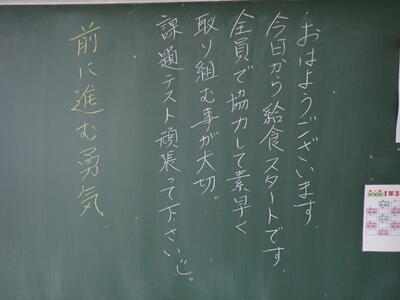 おはようございます.
今日から給食スタートです.
全員で協力して素早く
取り組む事が大切。
課題テスト頑張って下さい。
前に進む勇気